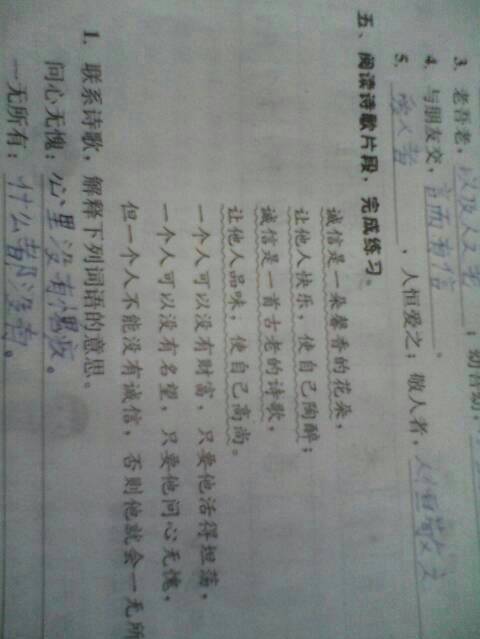 3. 老吾老，以及人之老；幼吾幼，
4. 与朋友交，言而有信。
5. 爱人者，人恒爱之；敬人者，人恒敬之
五、阅读诗歌片段，完成练习。
诚信是一朵馨香的花朵，
让他人快乐，使自己陶醉；
诚信是一首古老的诗歌，
让他人品味，使自己高尚。
一个人可以没有财富，只要他活得坦荡，
一个人可以没有名望，只要他问心无愧，
但一个人不能没有诚信，否则他就会一无所
1. 联系诗歌，解释下列词语的意思。
问心无愧：心里没有愧疚。
一无所有：什么都没有。